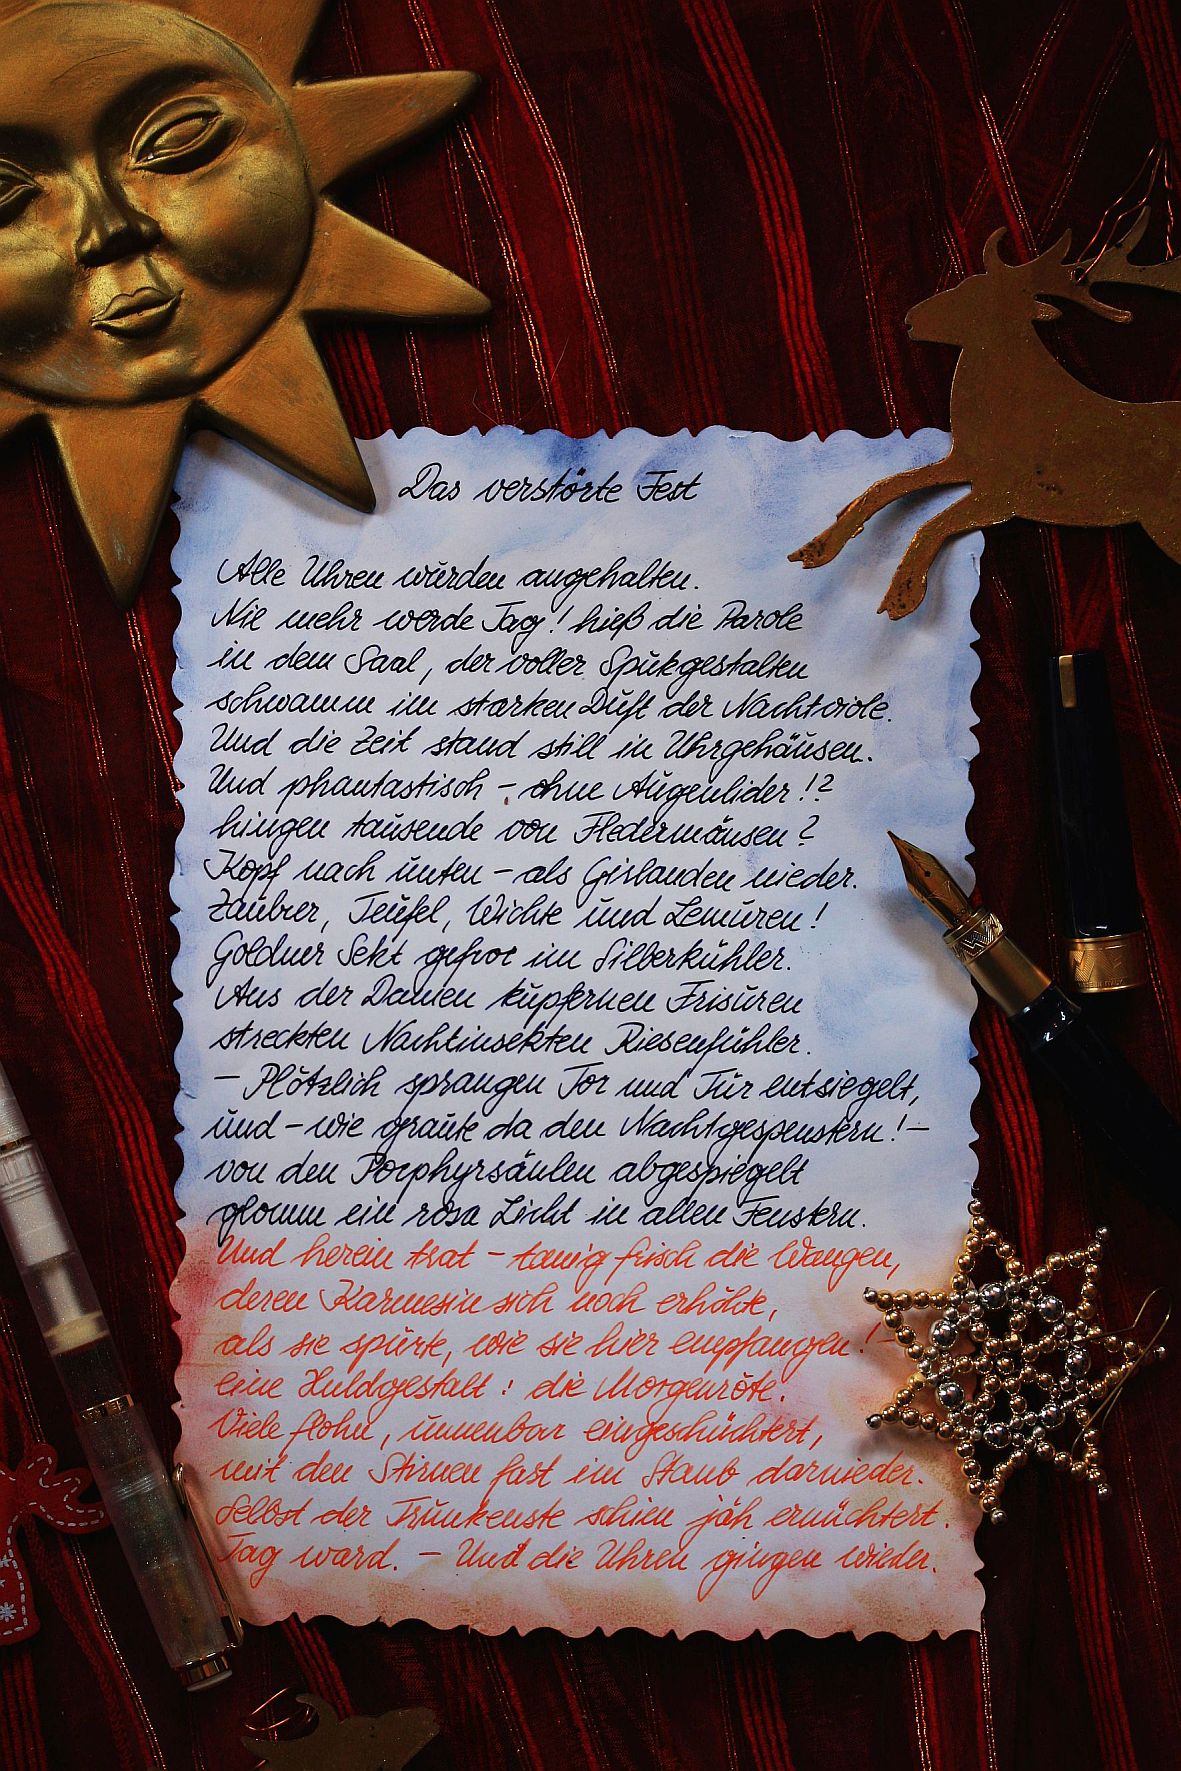 Das verstörte Fest
Alle Uhren wurden angehalten.
Nie mehr werde Tag! hieß die Parole
in dem Saal, der voller Spukgestalten
schwamm im starken Duft der Nachtviole.
Und die Zeit stand still in Uhrgehäusen.
Und phantastisch – ohne Augenlider!?
hingen tausende von Fledermäusen?
Kopf nach unten – als Girlanden nieder.
Zaubrer, Teufel, Wichte und Lemuren!
Goldner Sekt gefror im Silberkühler.
Aus der Damen kupfernen Frisuren
streckten Nachtinsekten Riesenfühler.
– Plötzlich sprangen Tor und Tür entsiegelt,
und – wie graute da den Nachtgespenstern! –
von den Porphyrsäulen abgespiegelt
glomm ein rosa Licht in allen Fenstern.
Und herein trat – tauig frisch die Wangen,
deren Karmesin sich noch erhöhte,
als sie spürte, wie sie hier empfangen! –
eine Huldgestalt: die Morgenröte.
Viele flohn, unnennbar eingeschüchtert,
mit den Stirnen fast im Staub darnieder.
Selbst der Trunkenste schien jäh ernüchtert.
Tag ward. – Und die Uhren gingen wieder.